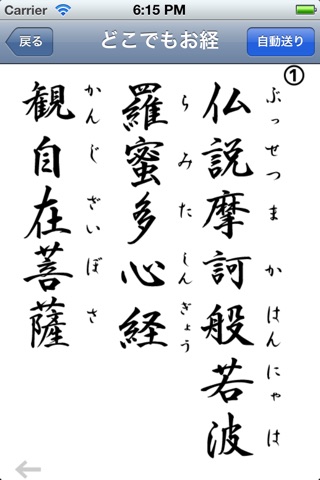 Carrier 6:15 PM
戻る どこでもお経 自動送り
①
仏説摩訶般若波
ぶっせつまかはんにゃは
羅蜜多心経
らみたしんぎょう
観自在菩薩
かんじざいぼさ